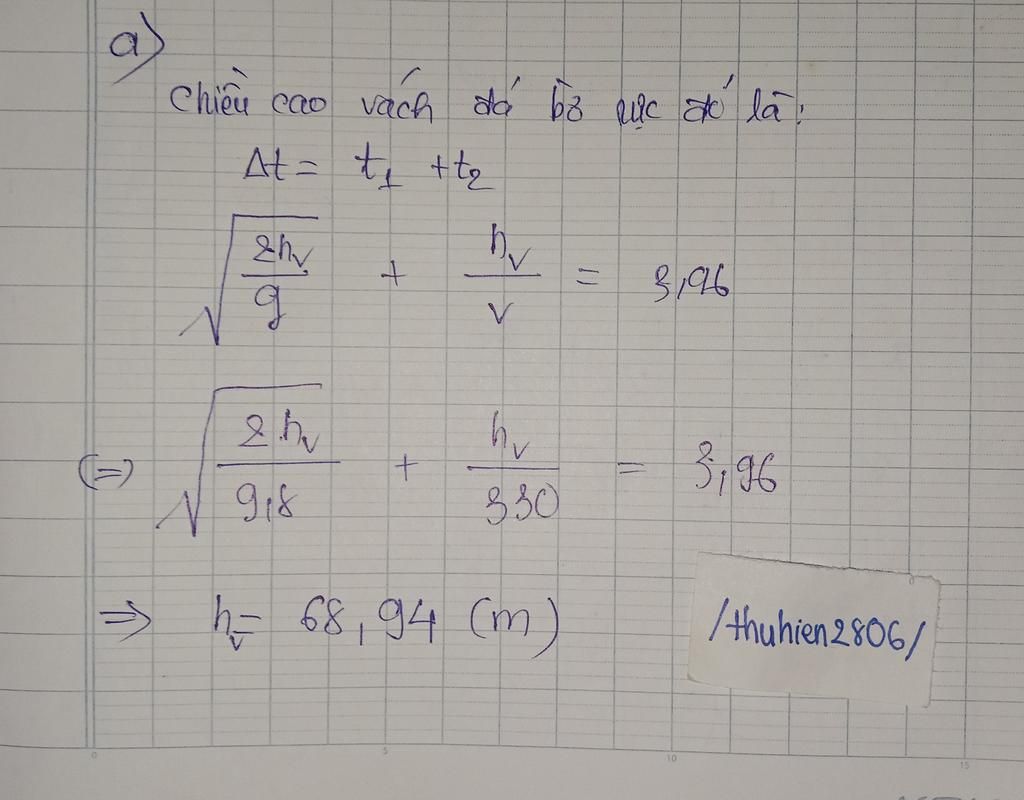 a)
Chiều cao vách đá bờ vực đó là:
Δt = t₁ + t₂
√(2h_v/g) + h_v/v = 3,96
(=) √(2h_v/9,8) + h_v/330 = 3,96
⇒ h_v = 68,94 (m)
/thuhien2806/
0 5 10 15